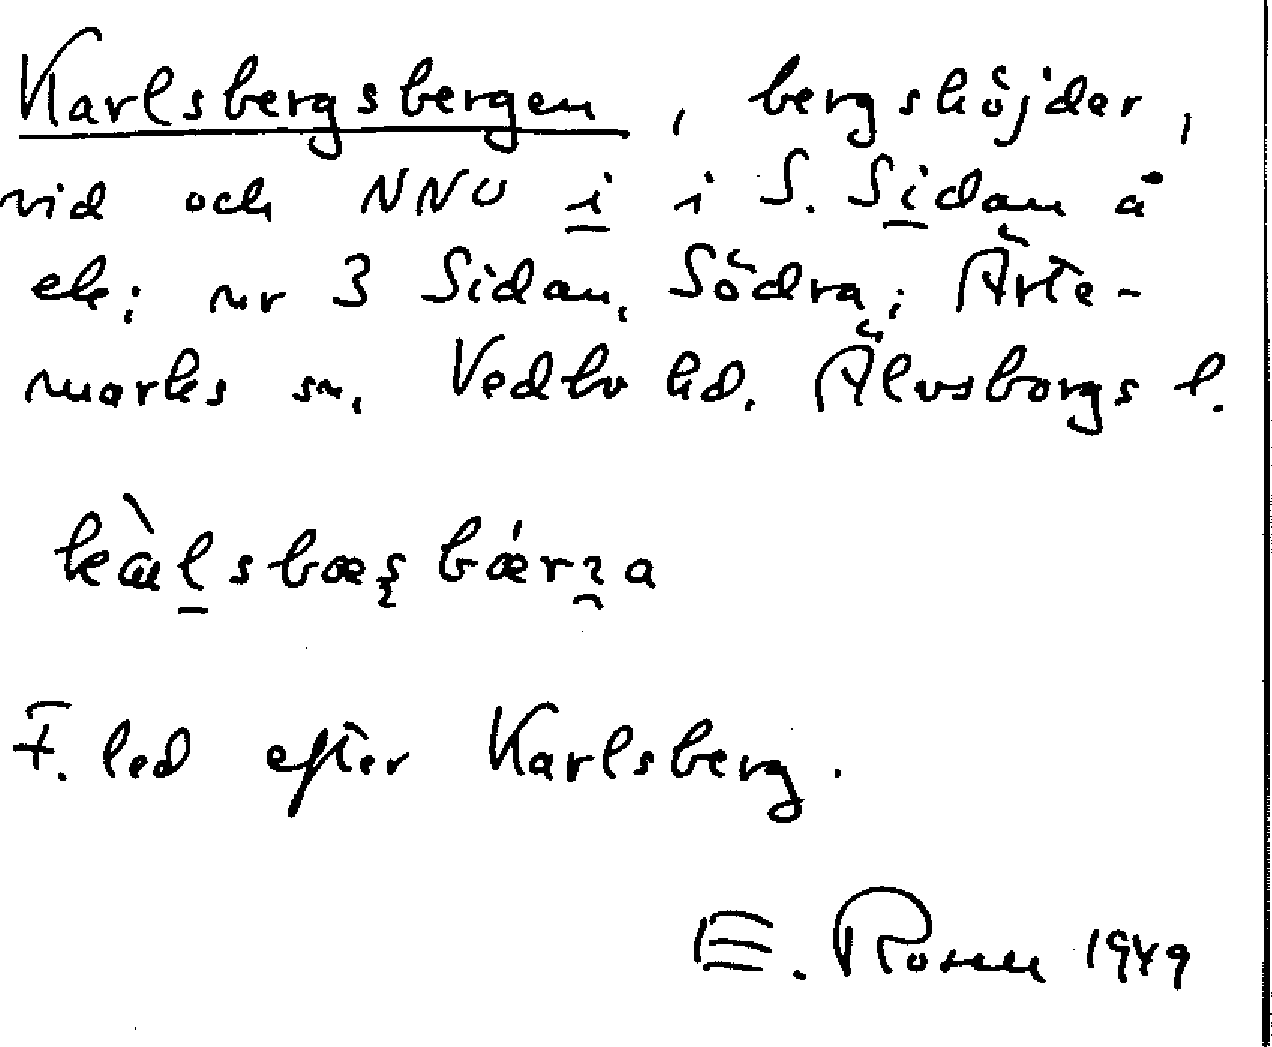 Karlsbergsbergen, bergshöjder,
vid och NNV i i S. Sidan å
ek; nr 3 Sidan, Södra; Ärte-
marks sn, Vedbo hd. Älvsborgs l.
F. led efter Karlsberg.
E. Rosen 1949